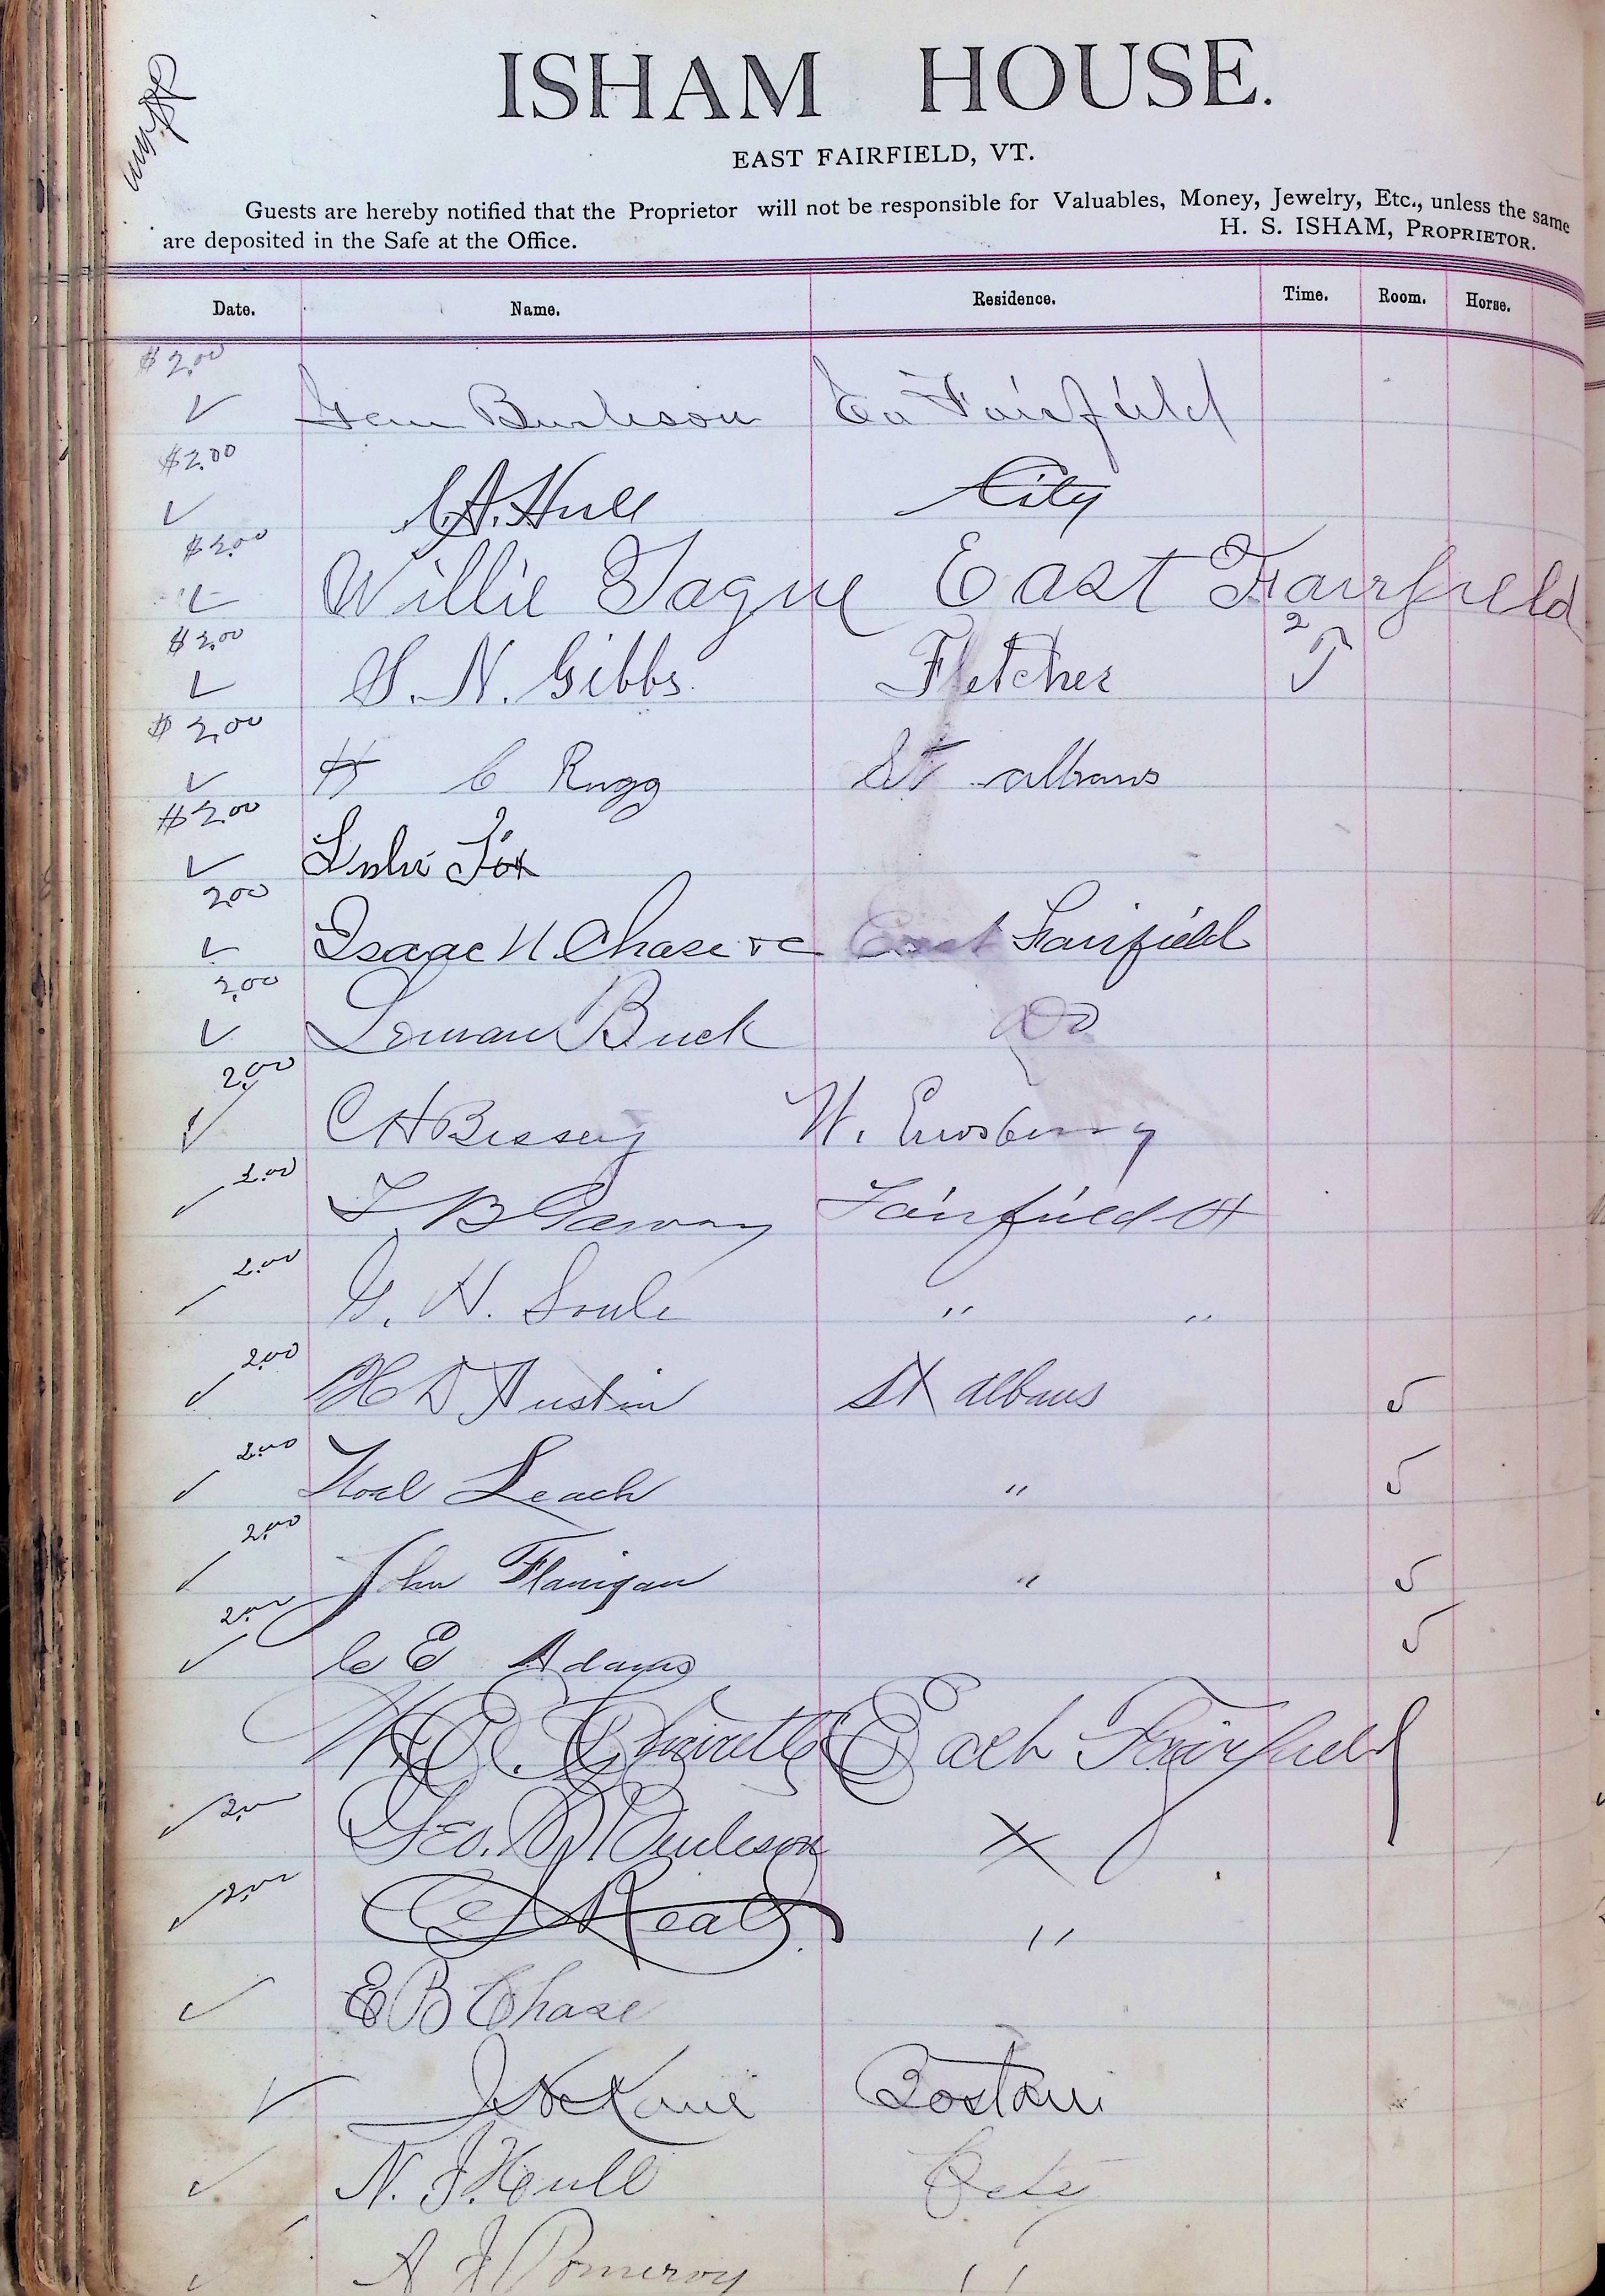 ISHAM HOUSE.
EAST FAIRFIELD, VT.
Guests are hereby notified that the Proprietor will not be responsible for Valuables, Money, Jewelry, Etc., unless the same
are deposited in the Safe at the Office. H. S. ISHAM, PROPRIETOR.
Date. Name. Residence. Time. Room. Horse.
$2.00
✓ Burleson Ea Fairfield
$2.00
✓ C.A. Hull City
$2.00
✓ Willie Tague East Fairfield
$2.00 2
✓ S. N. Gibbs. Fletcher
$2.00
✓ H C Rugg St albans
$2.00
✓ Leslie Fox
2.00
✓ Isaac N. Chase East Fairfield
2.00
✓ Luman Buck Do
2.00
✓ C H Bessey W. Enosburg
2.00
✓ B Fairfield
2.00
✓ G. H. Soule " "
2.00
✓ H D Austin St albans ✓
2.00
✓ Noel Leach " ✓
2.00
✓ John Flanigan " ✓
2.00
✓ C E Adams ✓
East Fairfield
✓ 2.00 Geo. Burleson X
✓ 2.00 Read "
✓ E B Chase
✓ Kane Boston
✓ N. J. Hull City
✓ A J Pomeroy "